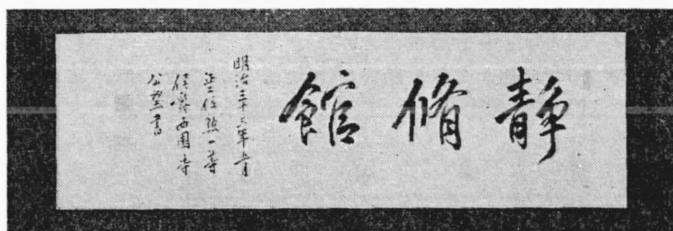 靜脩館
明治三十三年五月
正二位勲一等
侯爵西園寺
公望書